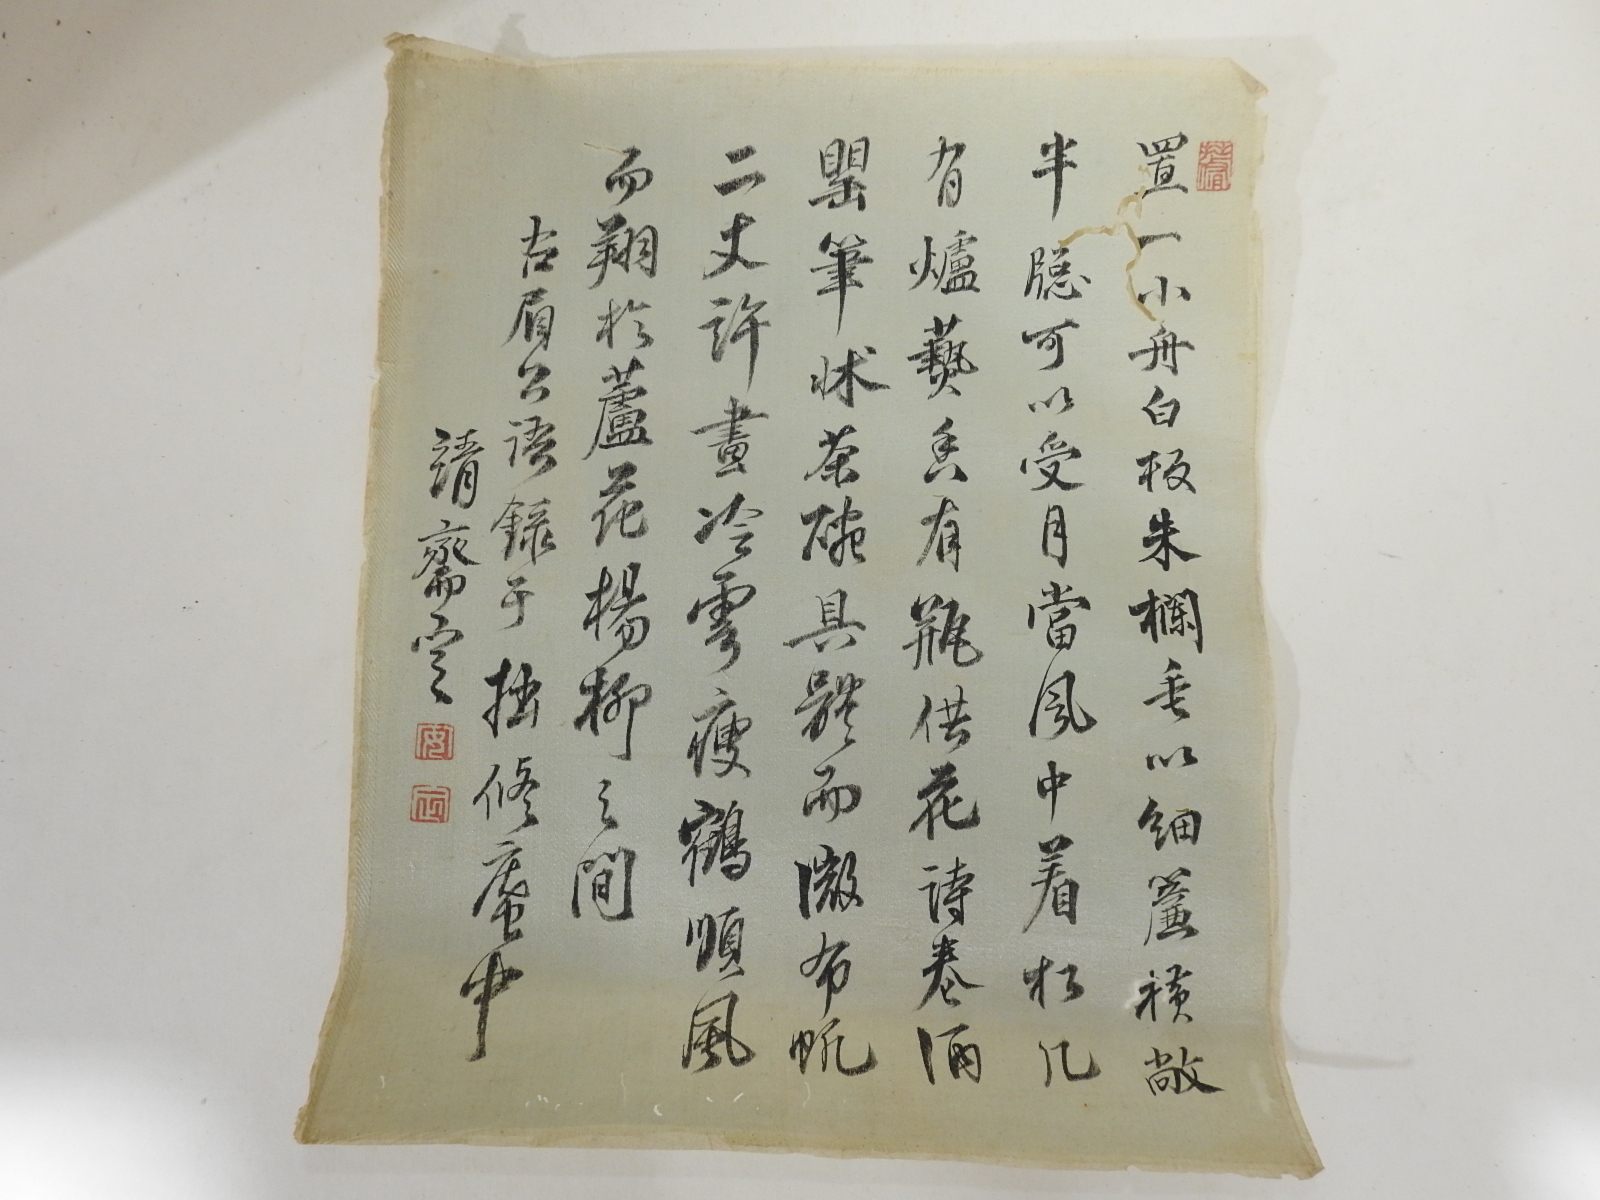 置一小舟白板朱欄垂以細簾橫敞
半隱可以受月當風中着松几
有爐爇香有瓶供花詩卷酒
罌筆牀茶碗具體而微布帆
二丈許畫冷雲瘦鶴順風
而翔於蘆花楊柳之間
右眉公語錄于拙修庵中
靖齋定